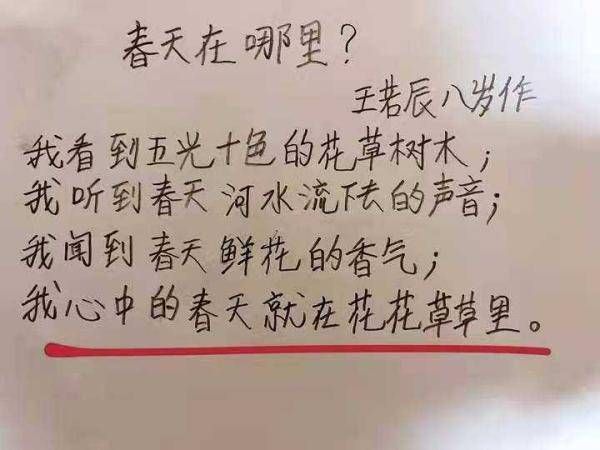 春天在哪里?
王若辰八岁作
我看到五光十色的花草树木;
我听到春天河水流下去的声音;
我闻到春天鲜花的香气;
我心中的春天就在花花草草里。